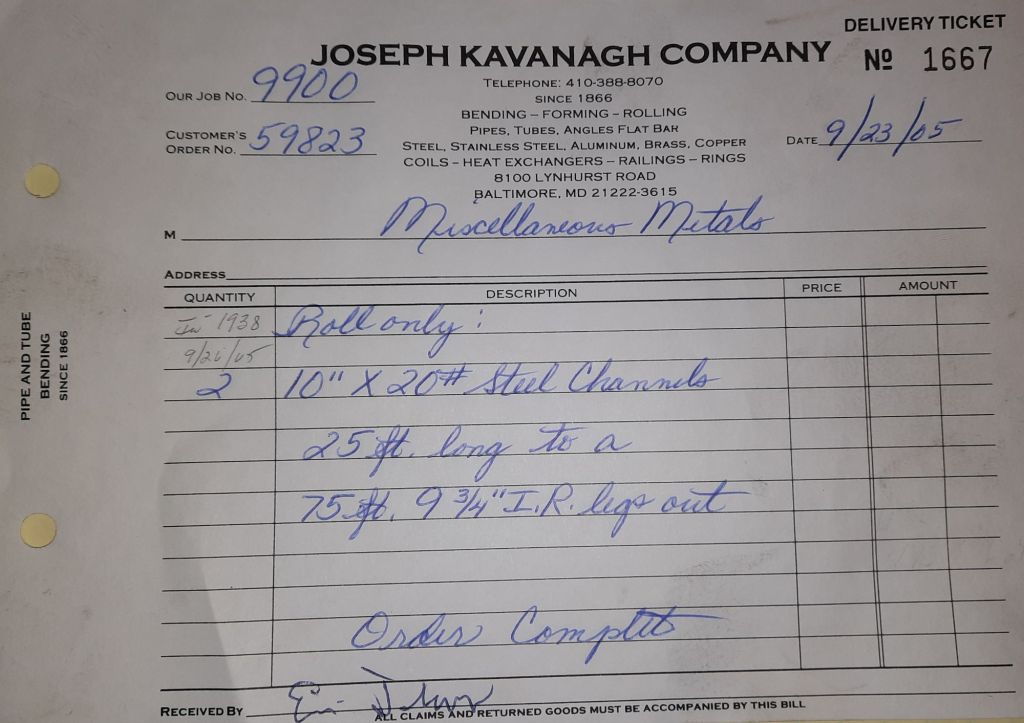 DELIVERY TICKET
JOSEPH KAVANAGH COMPANY
Nº 1667
TELEPHONE: 410-388-8070
OUR JOB NO. 9900
SINCE 1866
BENDING – FORMING – ROLLING
PIPES, TUBES, ANGLES FLAT BAR
CUSTOMER'S
ORDER NO. 59823
DATE 9/23/05
STEEL, STAINLESS STEEL, ALUMINUM, BRASS, COPPER
COILS – HEAT EXCHANGERS – RAILINGS – RINGS
8100 LYNHURST ROAD
BALTIMORE, MD 21222-3615
M Miscellaneous Metals
ADDRESS
QUANTITY DESCRIPTION PRICE AMOUNT
1938 Roll only:
2 10" X 20# Steel Channels
25 ft. long to a
75 ft. 9 3/4" I.R. legs out
Order Complete
RECEIVED BY
ALL CLAIMS AND RETURNED GOODS MUST BE ACCOMPANIED BY THIS BILL
PIPE AND TUBE
BENDING
SINCE 1866